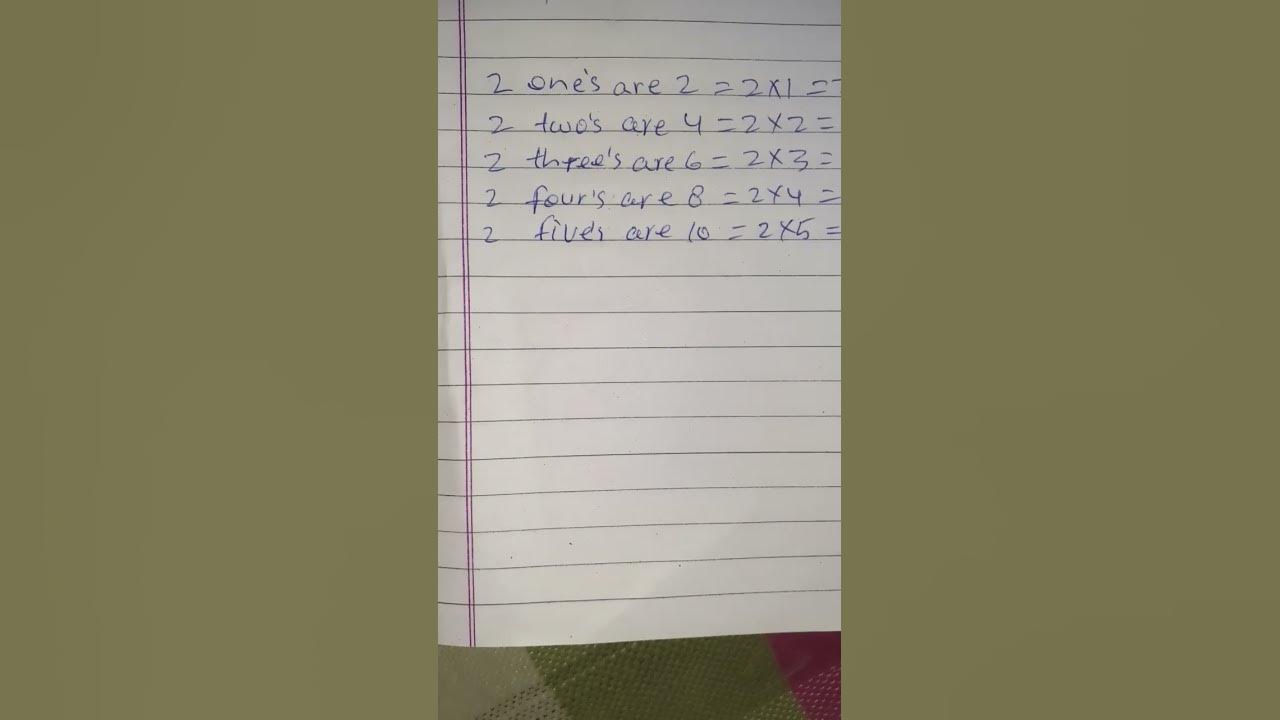 2 one's are 2 = 2×1 =
2 two's are 4 = 2×2 =
2 three's are 6 = 2×3 =
2 four's are 8 = 2×4 =
2 five's are 10 = 2×5 =